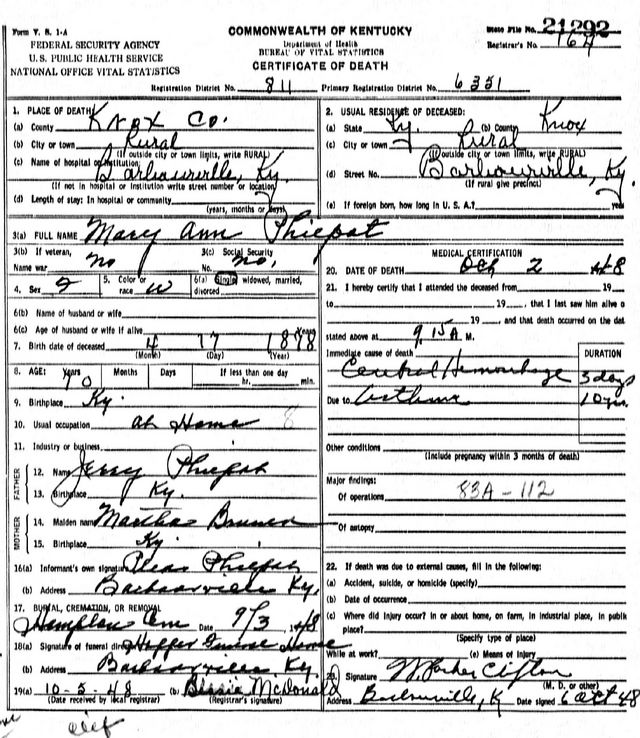 Form V. S. 1-A
COMMONWEALTH OF KENTUCKY
State File No. 21292
FEDERAL SECURITY AGENCY
Department of Health
Registrar's No. 164
U. S. PUBLIC HEALTH SERVICE
BUREAU OF VITAL STATISTICS
NATIONAL OFFICE VITAL STATISTICS
CERTIFICATE OF DEATH
Registration District No. 811 Primary Registration District No. 6351
1. PLACE OF DEATH
(a) County Knox Co.
(b) City or town Rural
(If outside city or town limits, write RURAL)
(c) Name of hospital or institution Barbourville, Ky.
(If not in hospital or institution write street number or location)
(d) Length of stay: In hospital or community
(years, months or days)
2. USUAL RESIDENCE OF DECEASED:
(a) State Ky. (b) County Knox
(c) City or town Rural
(If outside city or town limits, write RURAL)
(d) Street No. Barbourville, Ky.
(If rural give precinct)
(e) If foreign born, how long in U. S. A.? years
3(a) FULL NAME Mary Ann Phipat
3(b) If veteran, Name war no
3(c) Social Security No. no.
4. Sex F
5. Color or race W
6(a) Single, widowed, married, divorced
6(b) Name of husband or wife
6(c) Age of husband or wife if alive years
7. Birth date of deceased 4 17 1878
(Month) (Day) (Year)
8. AGE: Years Months Days If less than one day
70 hr. min.
9. Birthplace Ky.
10. Usual occupation at Home 8
11. Industry or business
FATHER
12. Name Jerry Phipat
13. Birthplace Ky.
MOTHER
14. Maiden name Martha
15. Birthplace Ky.
16(a) Informant's own signature
(b) Address Barbourville Ky.
17. BURIAL, CREMATION, OR REMOVAL
Hampton Cem Date 9/3 1948
18(a) Signature of funeral director Hopper Funeral Home
(b) Address Barbourville, Ky.
19(a) 10-5-48 (b) Bessie McDonald
(Date received by local registrar) (Registrar's signature)
MEDICAL CERTIFICATION
20. DATE OF DEATH 2 48
21. I hereby certify that I attended the deceased from 19
to 19 , that I last saw him alive o
19 , and that death occurred on the dat
stated above at 9,15 A M.
Immediate cause of death DURATION
Cerebral Hemorrhage 3 days
Due to asthma 10 yrs.
Other conditions
(Include pregnancy within 3 months of death)
Major findings:
Of operations 83A - 112
Of autopsy
22. If death was due to external causes, fill in the following:
(a) Accident, suicide, or homicide (specify)
(b) Date of occurrence
(c) Where did injury occur? In or about home, on farm, in industrial place, in publik
place?
(Specify type of place)
While at work? (e) Means of injury
23. Signature W. Parker Clifton
(M. D. or other)
Address Barbourville, K Date signed 6 Oct 48